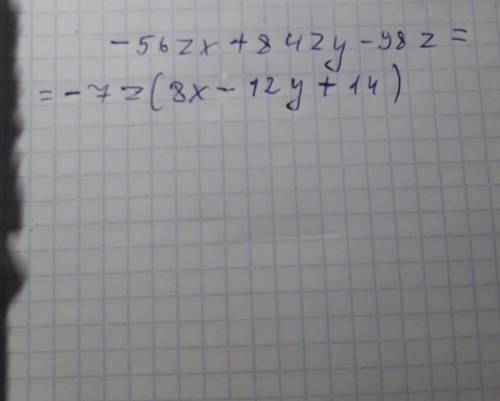 -56zx+84zy-98z=
=-7z(8x-12y+14)